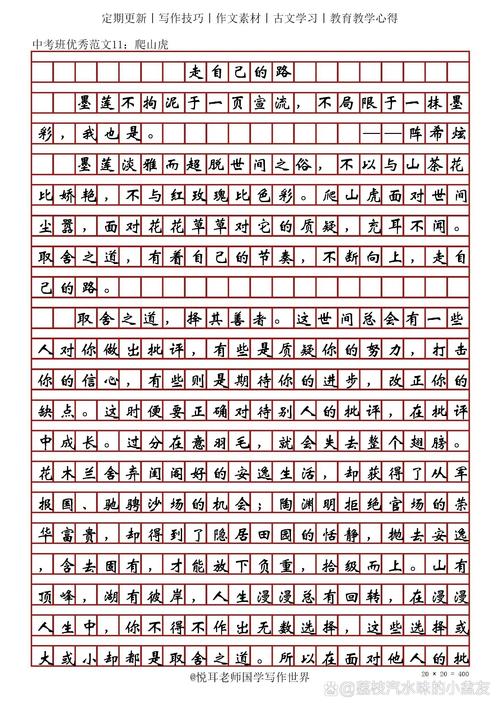 定期更新丨写作技巧丨作文素材丨古文学习丨教育教学心得
中考班优秀范文11：爬山虎
走自己的路
墨莲不拘泥于一页宣流，不局限于一抹墨
彩，我也是。——阵希炫
墨莲淡雅而超脱世间之俗，不以与山茶花
比娇艳，不与红玫瑰比色彩。爬山虎面对世间
尘嚣，面对花花草草对它的质疑，充耳不闻。
取舍之道，有着自己的节奏，不断向上，走自
己的路。
取舍之道，择其善者。这世间总会有一些
人对你做出批评，有些是质疑你的努力，打击
你的信心，有些则是期待你的进步，改正你的
缺点。这时便要正确对待别人的批评，在批评
中成长。过分在意羽毛，就会失去整个翅膀。
花木兰舍弃闺阁好的安逸生活，却获得了从军
报国、驰骋沙场的机会；陶渊明拒绝官场的荣
华富贵，却得到了隐居田园的恬静，抛去安逸
，含去固有，才能放下负重，拾级而上。山有
顶峰，湖有彼岸，人生漫漫总有回转，在漫漫
人生中，你不得不作出无数选择，这些选择或
大或小却都是取舍之道。所以在面对他人的批
20 × 20 = 400
@悦耳老师国学写作世界
知乎 @荔枝汽水味的小盆友